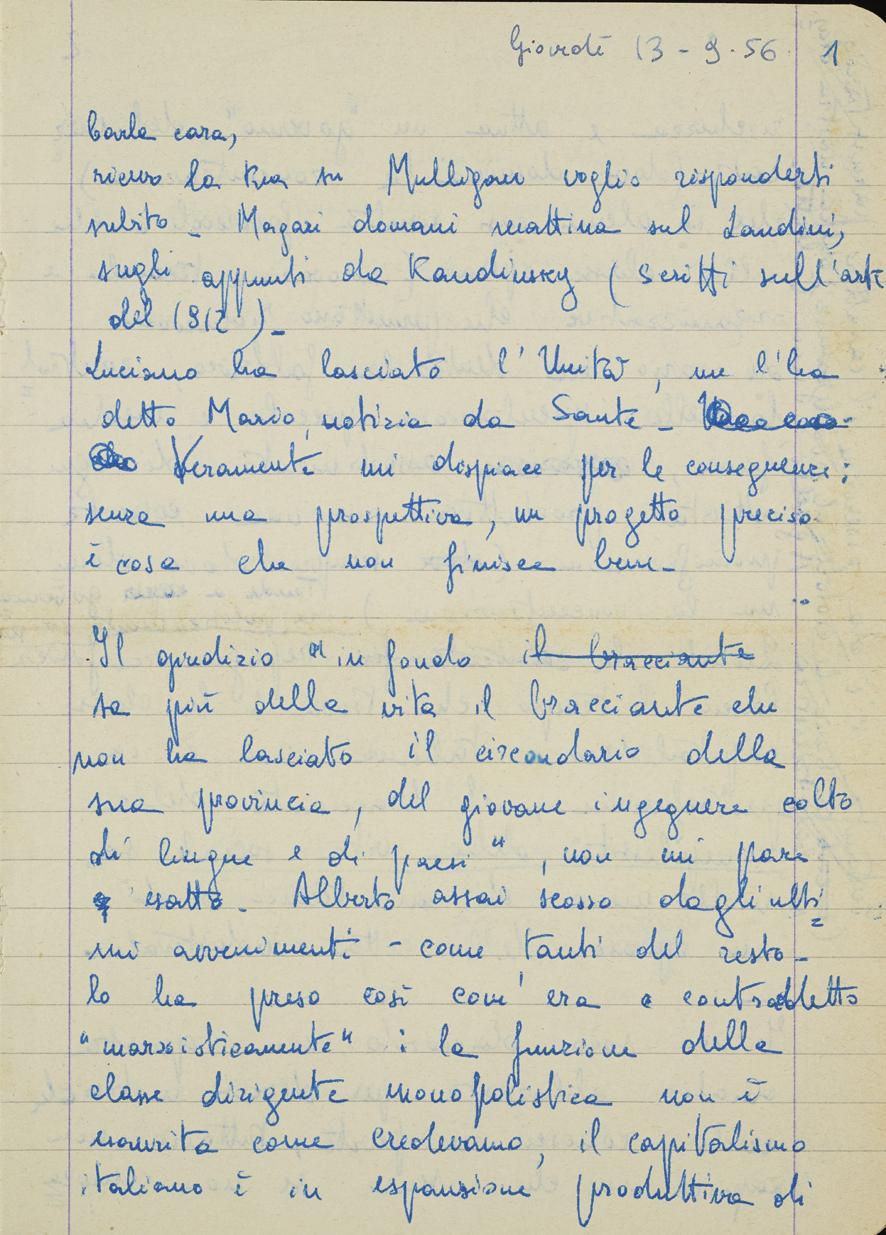 Giovedì 13-9-56 1
Carla cara,
ricevo la tua su Mulligan voglio risponderti
subito - Magari domani mattina sul Landini,
sugli appunti da Kandinsky (Scritti sull'arte
del 1912) -
Luciano ha lasciato l'Unità, me l'ha
detto Mario, notizia da Sante -
Veramente mi dispiace per le conseguenze;
senza una prospettiva, un progetto preciso
è cosa che non finisce bene -
Il giudizio "in fondo il bracciante
sa più della vita il bracciante che
non ha lasciato il circondario della
sua provincia, del giovane ingegnere colto
di lingue e di paesi", non mi pare
esatto - Alberto assai scosso dagli ulti=
mi avvenimenti - come tanti del resto -
lo ha preso così com'era e contraddetto
"marxisticamente": la funzione della
classe dirigente monopolistica non è
esaurita come credevamo, il capitalismo
italiano è in espansione produttiva di